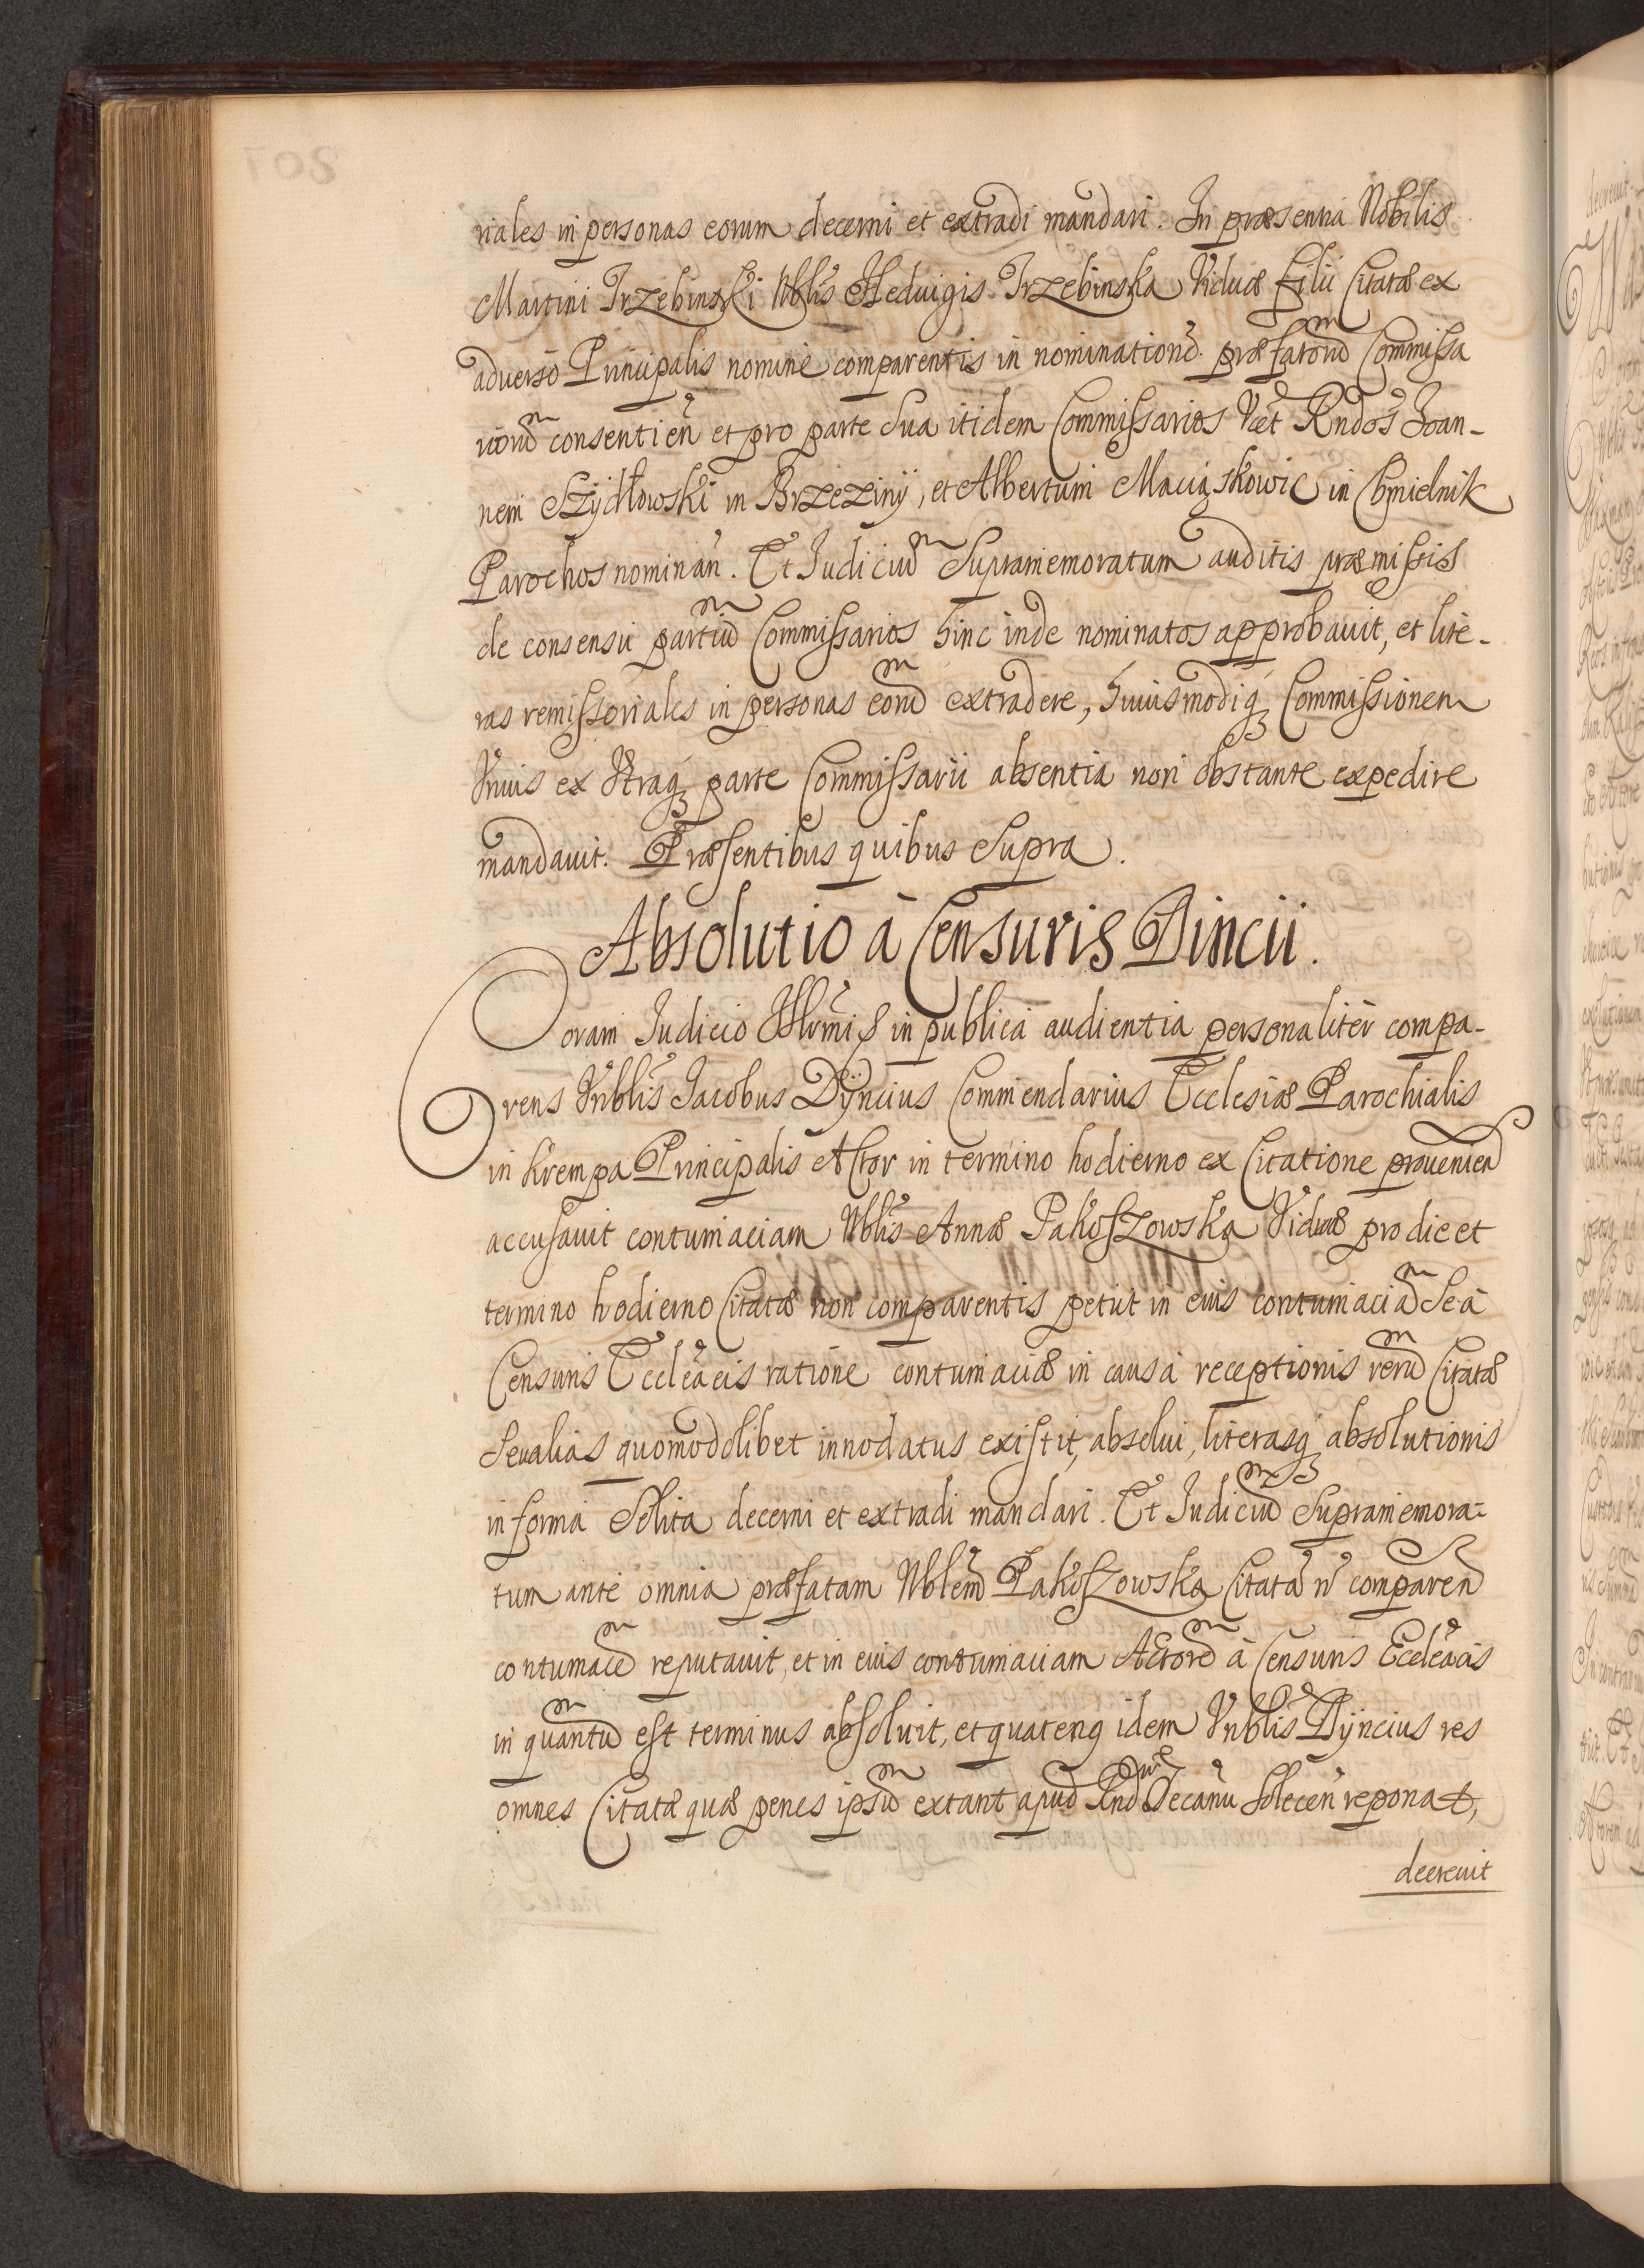 riales in personas eorum decerni et extradi mandari. In præsentia Nobilis
Martini Trzebinski Nblis Heduigis Trzebinska Viduæ Filii Citatæ ex
aduerso Principalis nomine comparentis in nominatione præfatorum Commissa
riorum consentien et pro parte Sua itidem Commissarios Vet Rndos Joan-
nem Szÿdłowski in Brzezinÿ, et Albertum Maciąskowic in Chmielnik
Parochos nominan. Et Judicium Supramemoratum auditis præmissis
de consensu partium Commissarios hinc inde nominatos approbauit, et lite-
ras remissoriales in personas eorum extradere, huiusmodiq Commissionem
Vnius ex Vtraq parte Commissarii absentia non obstante expedire
mandauit. Præsentibus quibus Supra.
Absolutio à Censuris Dincii.
Coram Judicio in publica audientia personaliter compa-
rens Vnblis Jacobus Dÿncius Commendarius Ecclesiæ Parochialis
in Krempa Principalis Actor in termino hodierno ex Citatione prouenien
accusauit contumaciam Nblis Annæ Pakoszowska Viduæ pro die et
termino hodierno Citatæ non comparentis petiit in eius contumaciam Se à
Censuris Eccleacis ratione contumaciæ in causa receptionis rerum Citatæ
Seualias quomodolibet innodatus existit, absolui, literasq absolutionis
in forma Solita decerni et extradi mandari. Et Judicium Supramemora-
tum ante omnia præfatam Nblem Pakoszowska Citatā n comparen
contumacem reputauit, et in eius contumaciam Actorem à Censuris Eccleacis
in quantum est terminus absoluit, et quatenq idem Vnblis Dÿncius res
omnes Citatæ quæ penes ipsum extant apud Rnd Decanū Solecen reponat,
decreuit